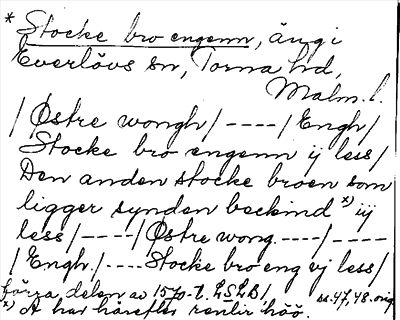 * Stocke bro engenn, äng i
Everlövs sn, Torna hd,
Malm. l.
/ Østre wongh / ---- / Engh /
Stocke bro engenn ij less /
Den anden stocke broen som
ligger synden beckind x) iij
less / ---- / Østre wong. ---- / ----
/ Engh. / ---- Stocke bro eng vj less /
förra delen av 1570-t. LSLB / ss. 47, 48. orig.
x) At har härefter renlir höö.